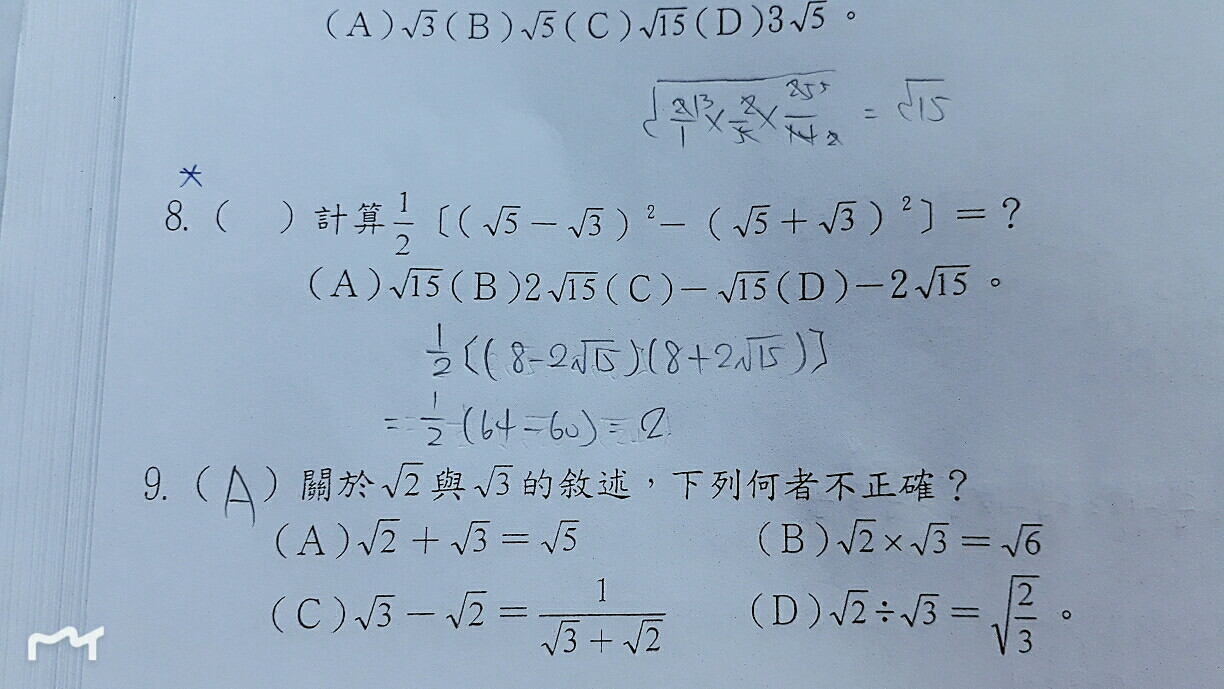 (A)√3(B)√5(C)√15(D)3√5。
√(21³/1×2/5×25⁵/14₂) = √15
*
8. (　) 計算 1/2〔(√5－√3)²－(√5＋√3)²〕＝?
(A)√15(B)2√15(C)－√15(D)－2√15。
1/2[(8-2√15)(8+2√15)]
= 1/2(64-60)=2
9. (A) 關於√2與√3的敘述，下列何者不正確?
(A)√2＋√3＝√5 (B)√2×√3＝√6
(C)√3－√2＝1/(√3＋√2) (D)√2÷√3＝√(2/3)。